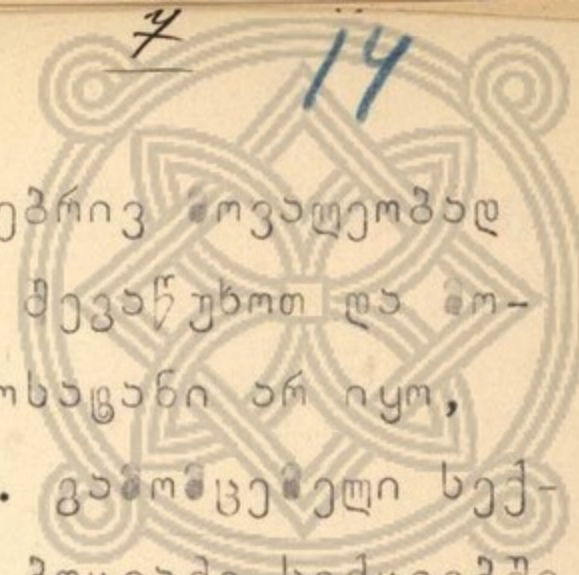 7 14
ებრივ მოვალეობად
შევაწუხოთ და მო-
ოსატანი არ იყო,
. გამომცემელი სექ-